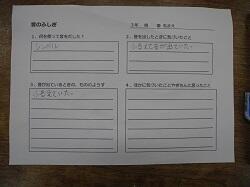 音のふしぎ
3年　組　番 名前
1. 何を使って音をだした？
シンバル
2. 音を出したときに気づいたこと
ふるえて音が出ていた。
3. 音が出ているときの、もののようす
ふるえていた。
4. ほかに気づいたことやぎもんに思ったこと